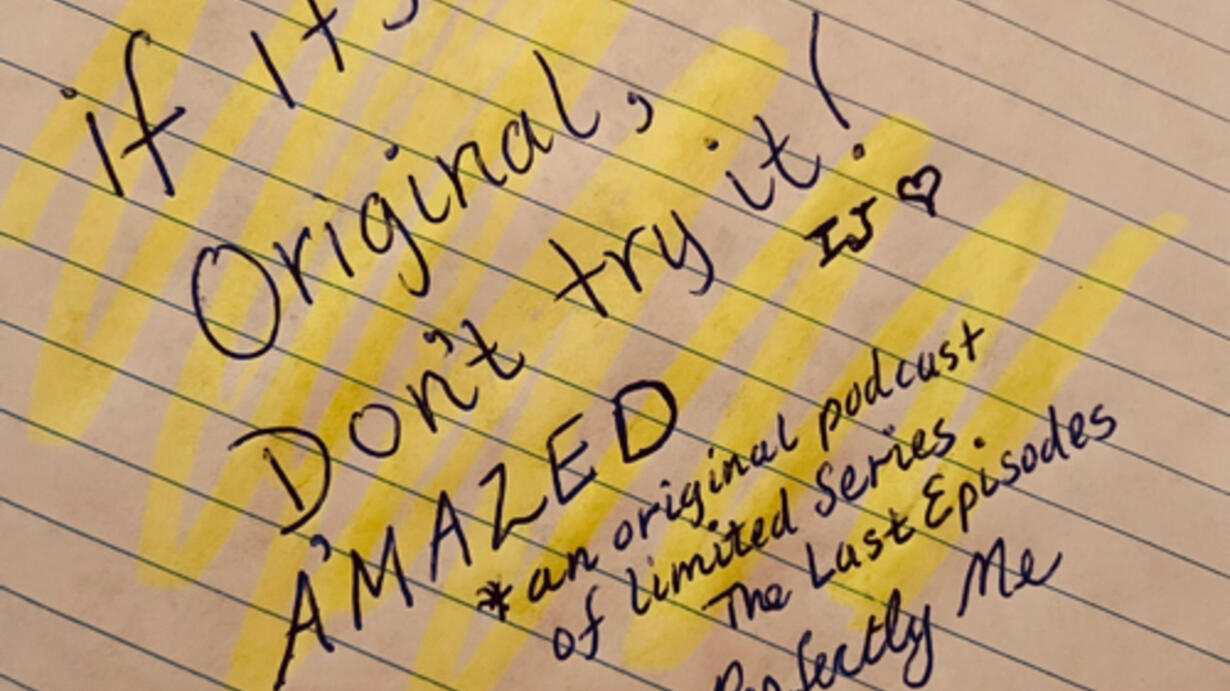 if It's
Original,
Don't try it!
IJ ♡
A'MAZED
*an original podcast
of limited series.
The Last Episodes
Perfectly Me